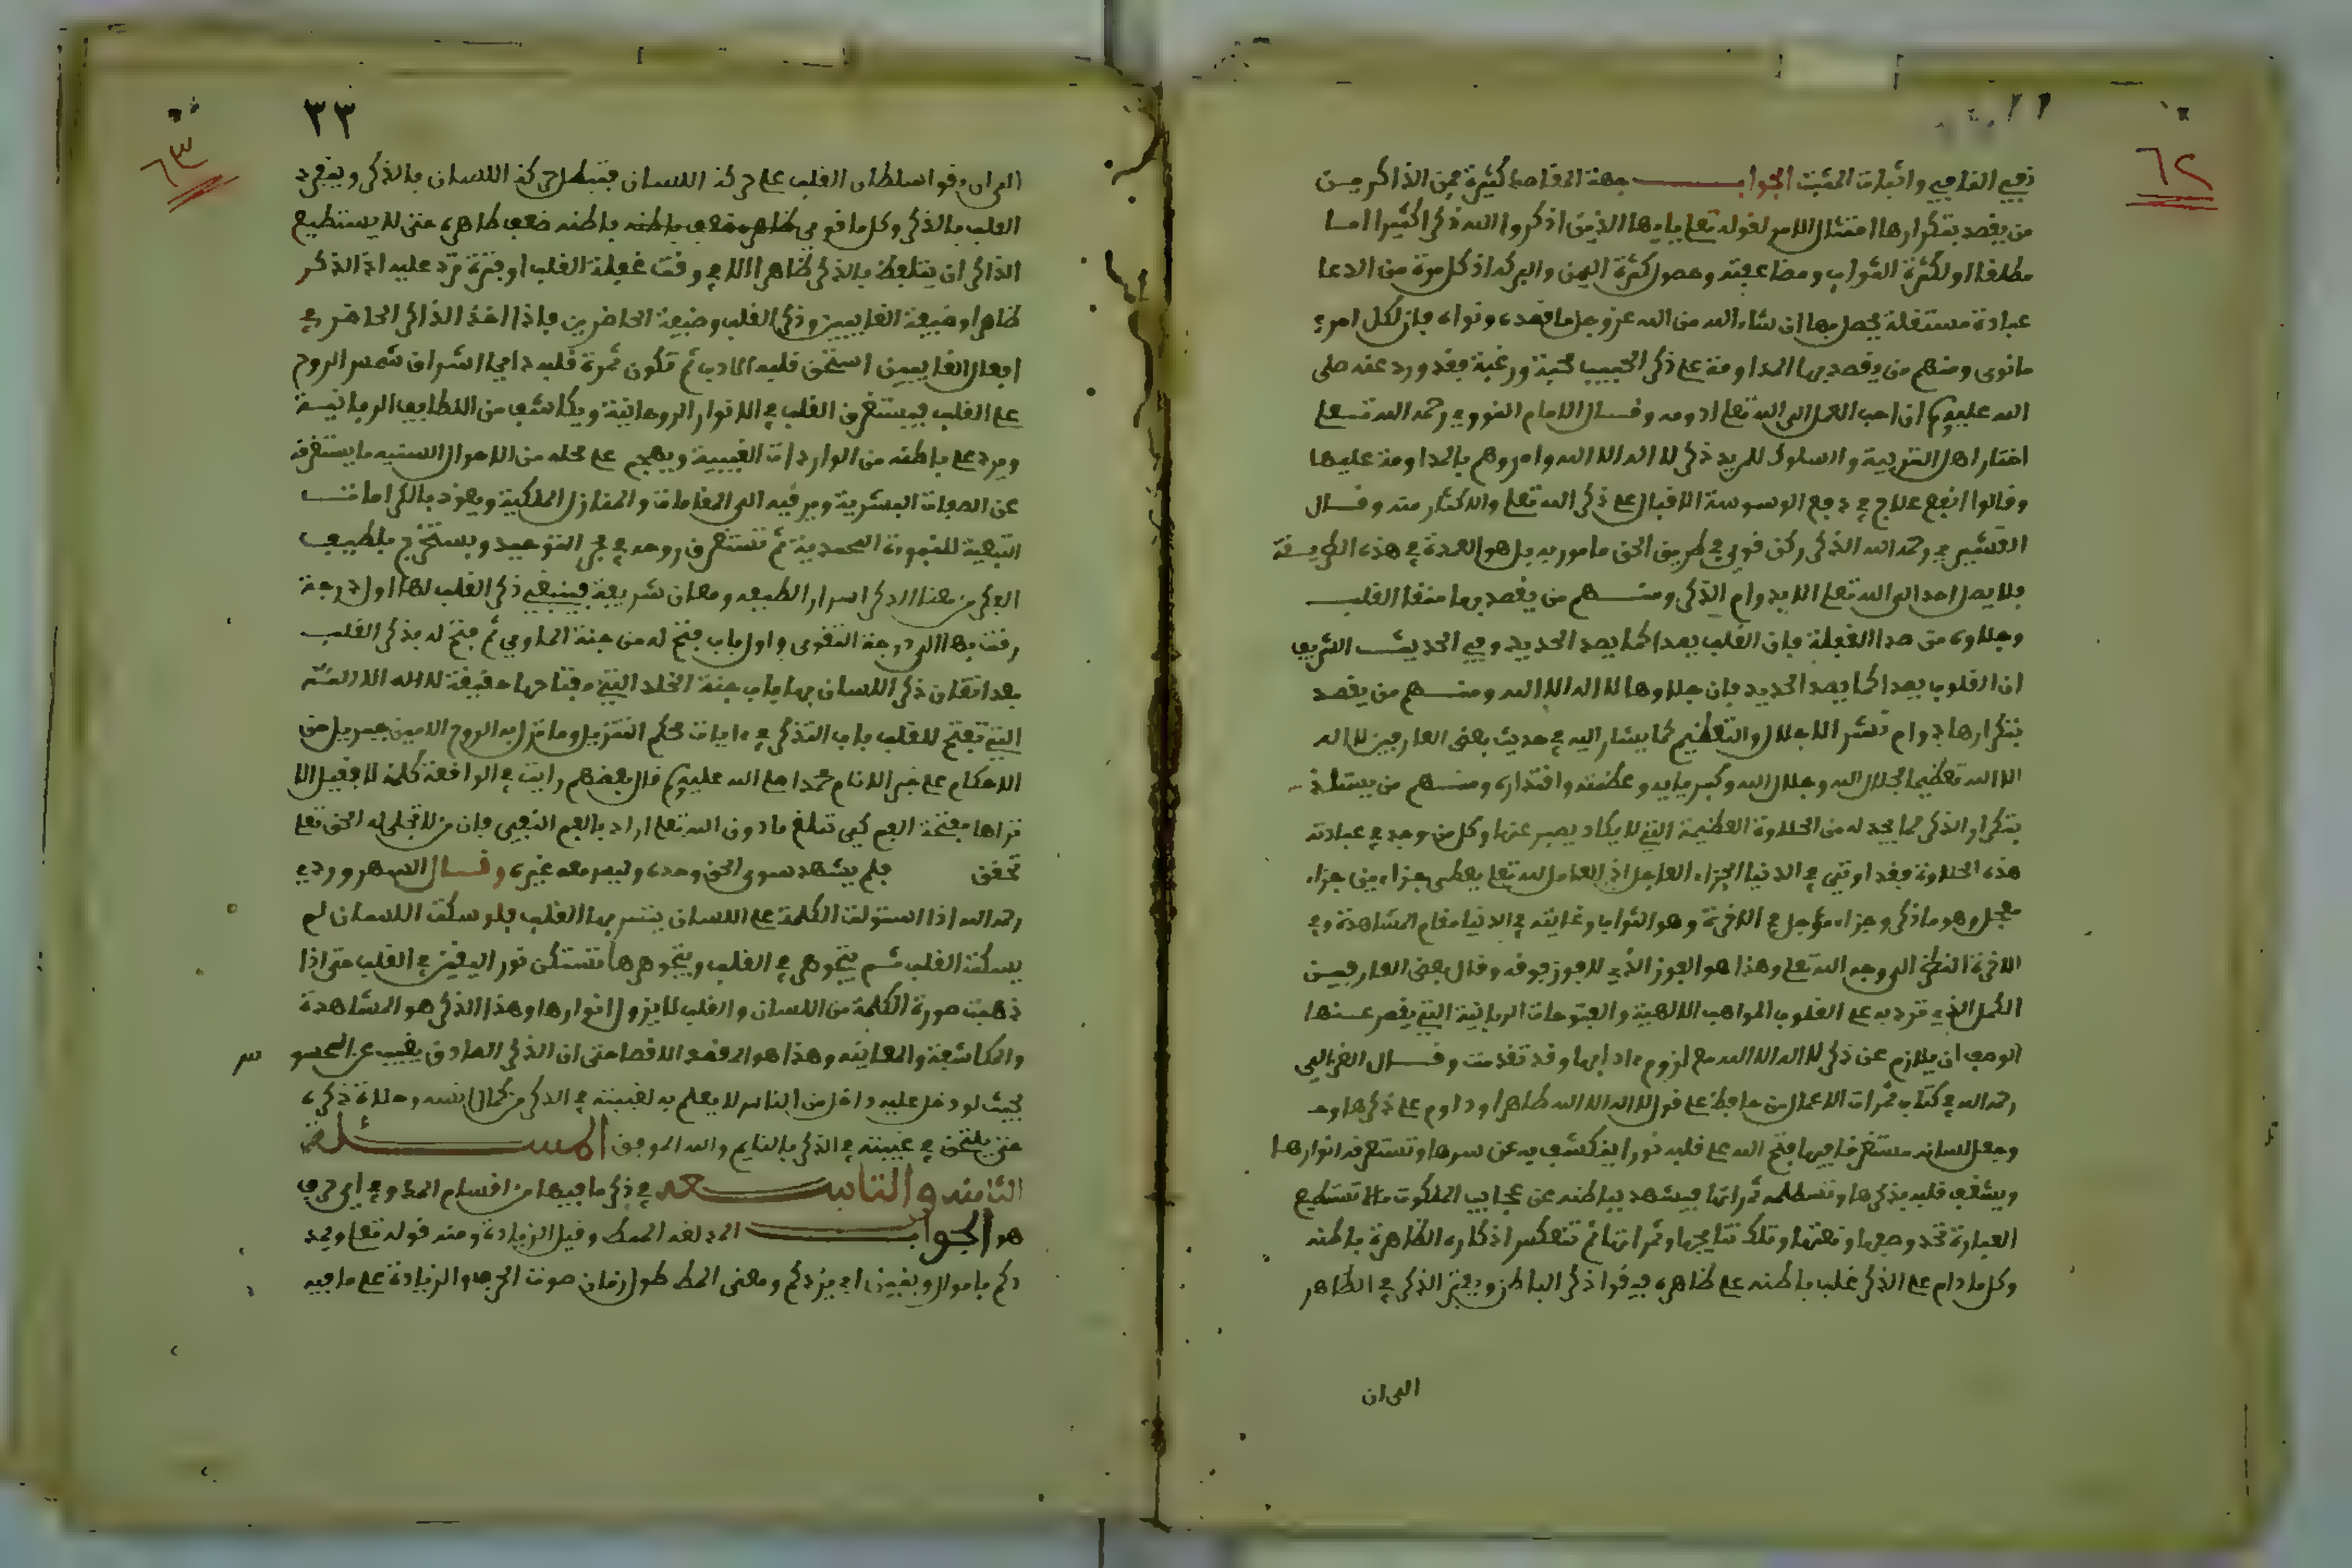 ٦٢
نفي النافي واثبات المثبت الجواب جهة المقاصد كثيرة فمن الذاكرين
من يقصد بتكرارها امتثال الامر لقوله تعلى يايها الذين اذكروا الله ذكرا كثيرا اما
مطلقا او لكثرة الثواب ومضاعفته وحصول كثرة اليمن والبركة اذ كل مرة من الدعا
عبادة مستقلة يحصل بها ان شاء الله من الله عز وجل ما قصده ونواه فان لكل امرئ
ما نوى ومنهم من يقصد بها المداومة على ذكر الحبيب محبة ورغبة فقد ورد عنه صلى
الله عليه وسلم ان احب العمل الى الله تعلى ادومه وقال الامام النووي رحمه الله تعلى
اختار اهل التربية والسلوك للمريد ذكر لا اله الا الله وامروهم بالمداومة عليها
وقالوا انفع علاج في دفع الوسوسة الاقبال على ذكر الله تعلى والاكثار منه وقال
القشيري رحمه الله الذكر ركن قوي في طريق الحق مامور به بل هو العمدة في هذه الطريقة
فلا يصل احد الى الله تعلى الا بدوام الذكر ومنهم من يقصد بها صقل القلب
وجلاوه من صدا الغفلة فان القلب يصدا كما يصد الحديد وفي الحديث الشريف
ان القلوب يصدا كما يصد الحديد فان جلاوها لا اله الا الله ومنهم من يقصد
بتكرارها دوام نشر الاجلال والتعظيم كما يشار اليه في حديث بعض العارفين لا اله
الا الله تعظيما لجلال الله وجلال الله وكبريايه وعظمته واقتداره ومنهم من يستلذ
بتكرار الذكر لما يجد له من الحلاوة العظيمة التي لا يكاد يصبر عنها وكل من وجد في عبادته
هذه الحلاوة فقد اوتي في الدنيا الجزاء العاجل اذ العامل لله تعلى يعطى جزاءين جزاء
معجل وهو ما ذكر وجزاء مؤجل في الاخرة وهو الثواب وغايته في الدنيا مقام المشاهدة وفي
الاخرة النظر الى وجه الله تعلى وهذا هو الفوز الذي لا فوز فوقه وقال بعض العارفين
العمل الذي ترد به على القلوب المواهب الالاهية والفتوحات الربانية التي يقصر عنها
الوصف ان يلازم عن ذكر لا اله الا الله مع لزوم ءادابها وقد تقدمت وقال الغزالي
رحمه الله في كتاب ثمرات الاعمال من حافظ على قول لا اله الا الله ظاهرا وداوم على ذكرها وحد
وجعل لسانه مستغرقا فيها فتح الله على قلبه نورا ينكشف به عن سرها وتستغرقه انوارها
ويشغف قلبه بذكرها وتستطلعه ثمراتها فيشهد بباطنه عن عجايب الملكوت ما لا تستطيع
العبارة تحد وصفها ونعتها وتلك نتايجها وثمراتها ثم تنعكس اذكاره الظاهرة باطنه
وكل ما دام على الذكر غلب باطنه على ظاهره فيقوا ذكر الباطن ويفتر الذكر في الظاهر
الى ان
٣٣
٦٣
الى ان يقوا سلطان القلب على حركة اللسان فتبطل حركة اللسان بالذكر وينفرد
القلب بالذكر وكل ما قوي باطنه ضعف ظاهره حتى لا يستطيع
الذاكر ان يتلفظ بالذكر ظاهرا الا في وقت غفلة القلب او فترة ترد عليه اذ الذكر
ظاهرا وضيفة الغايبين وذكر القلب وضيفة الحاضرين فاذا اخذ الذاكر الحاضر في
افعال الغايبين استحق قلبه الادب ثم تكون ثمرة قلبه دايما اشراق شمس الروح
على القلب فيستغرق القلب في الانوار الروحانية ويكاشف من اللطايف الربانية
ويرد على باطنه من الواردات الغيبية ويهجم على محله من الاحوال السنيه ما يستغرقه
عن الصفات البشرية ويرقيه الى المقامات والمنازل الملكية ويفوز بالكرامات
التبعية للنبوءة المحمدية ثم تستغرق روحه في بحر التوحيد ويستخرج بلطيف
الفكر من هنا الذكر اسرار الطبيعه ومعان شريفة فينبغي ذكر القلب لها اول درجة
رقت بها الى درجة التقوى واول باب فتح له من جنة الماوى ثم فتح له بذكر القلب
بعد اتقان ذكر اللسان بها باب جنة الخلد التي مفتاحها حقيقة لا اله الا الله
التي تفتح للقلب باب التذكر في ءايات محكم التنزيل وما نزل به الروح الامين جبريل من
الاحكام على خير الانام محمد صلى الله عليه وسلم قال بعضهم رايت في الواقعة كلمة لا فقيل لا
تراها مفتحة الفم كي تبلغ ما دون الله تعلى اراد بالفم النفي فان من لا تجلى له الحق تعلى
تحقق فلم يشهد سوى الحق وحده وليس معه غيره وقال السهروردي
رحمه الله اذا استولت الكلمة على اللسان يتشربها القلب فلو سكت اللسان لم
يسكت القلب ثم تتجوهر في القلب وبتجوهرها تستكن نور اليقين في القلب حتى اذا
ذهبت صورة الكلمة من اللسان والقلب لا يزول انوارها وهذا الذكر هو المشاهدة
والمكاشفة والمعاينه وهذا هو المقصد الاقصا حتى ان الذكر الصادق يغيب عن المحسو س
بحيث لو دخل عليه داخل من الناس لا يعلم به لغيبته في الذكر من كمال انسه وحلاوة ذكره
حتى يلتحق في غيبته في الذكر بالنايم والله الموفق المسئلة
الثامنه والتاسعه في ذكر ما فيها من اقسام المد وفي اي حرف
هو الجواب المد لغة المط وقيل الزيادة ومنه قوله تعلى ويمد
دكم باموال وبنين اي يزدكم ومعنى المط طول زمان صوت الحرف والزيادة على ما فيه